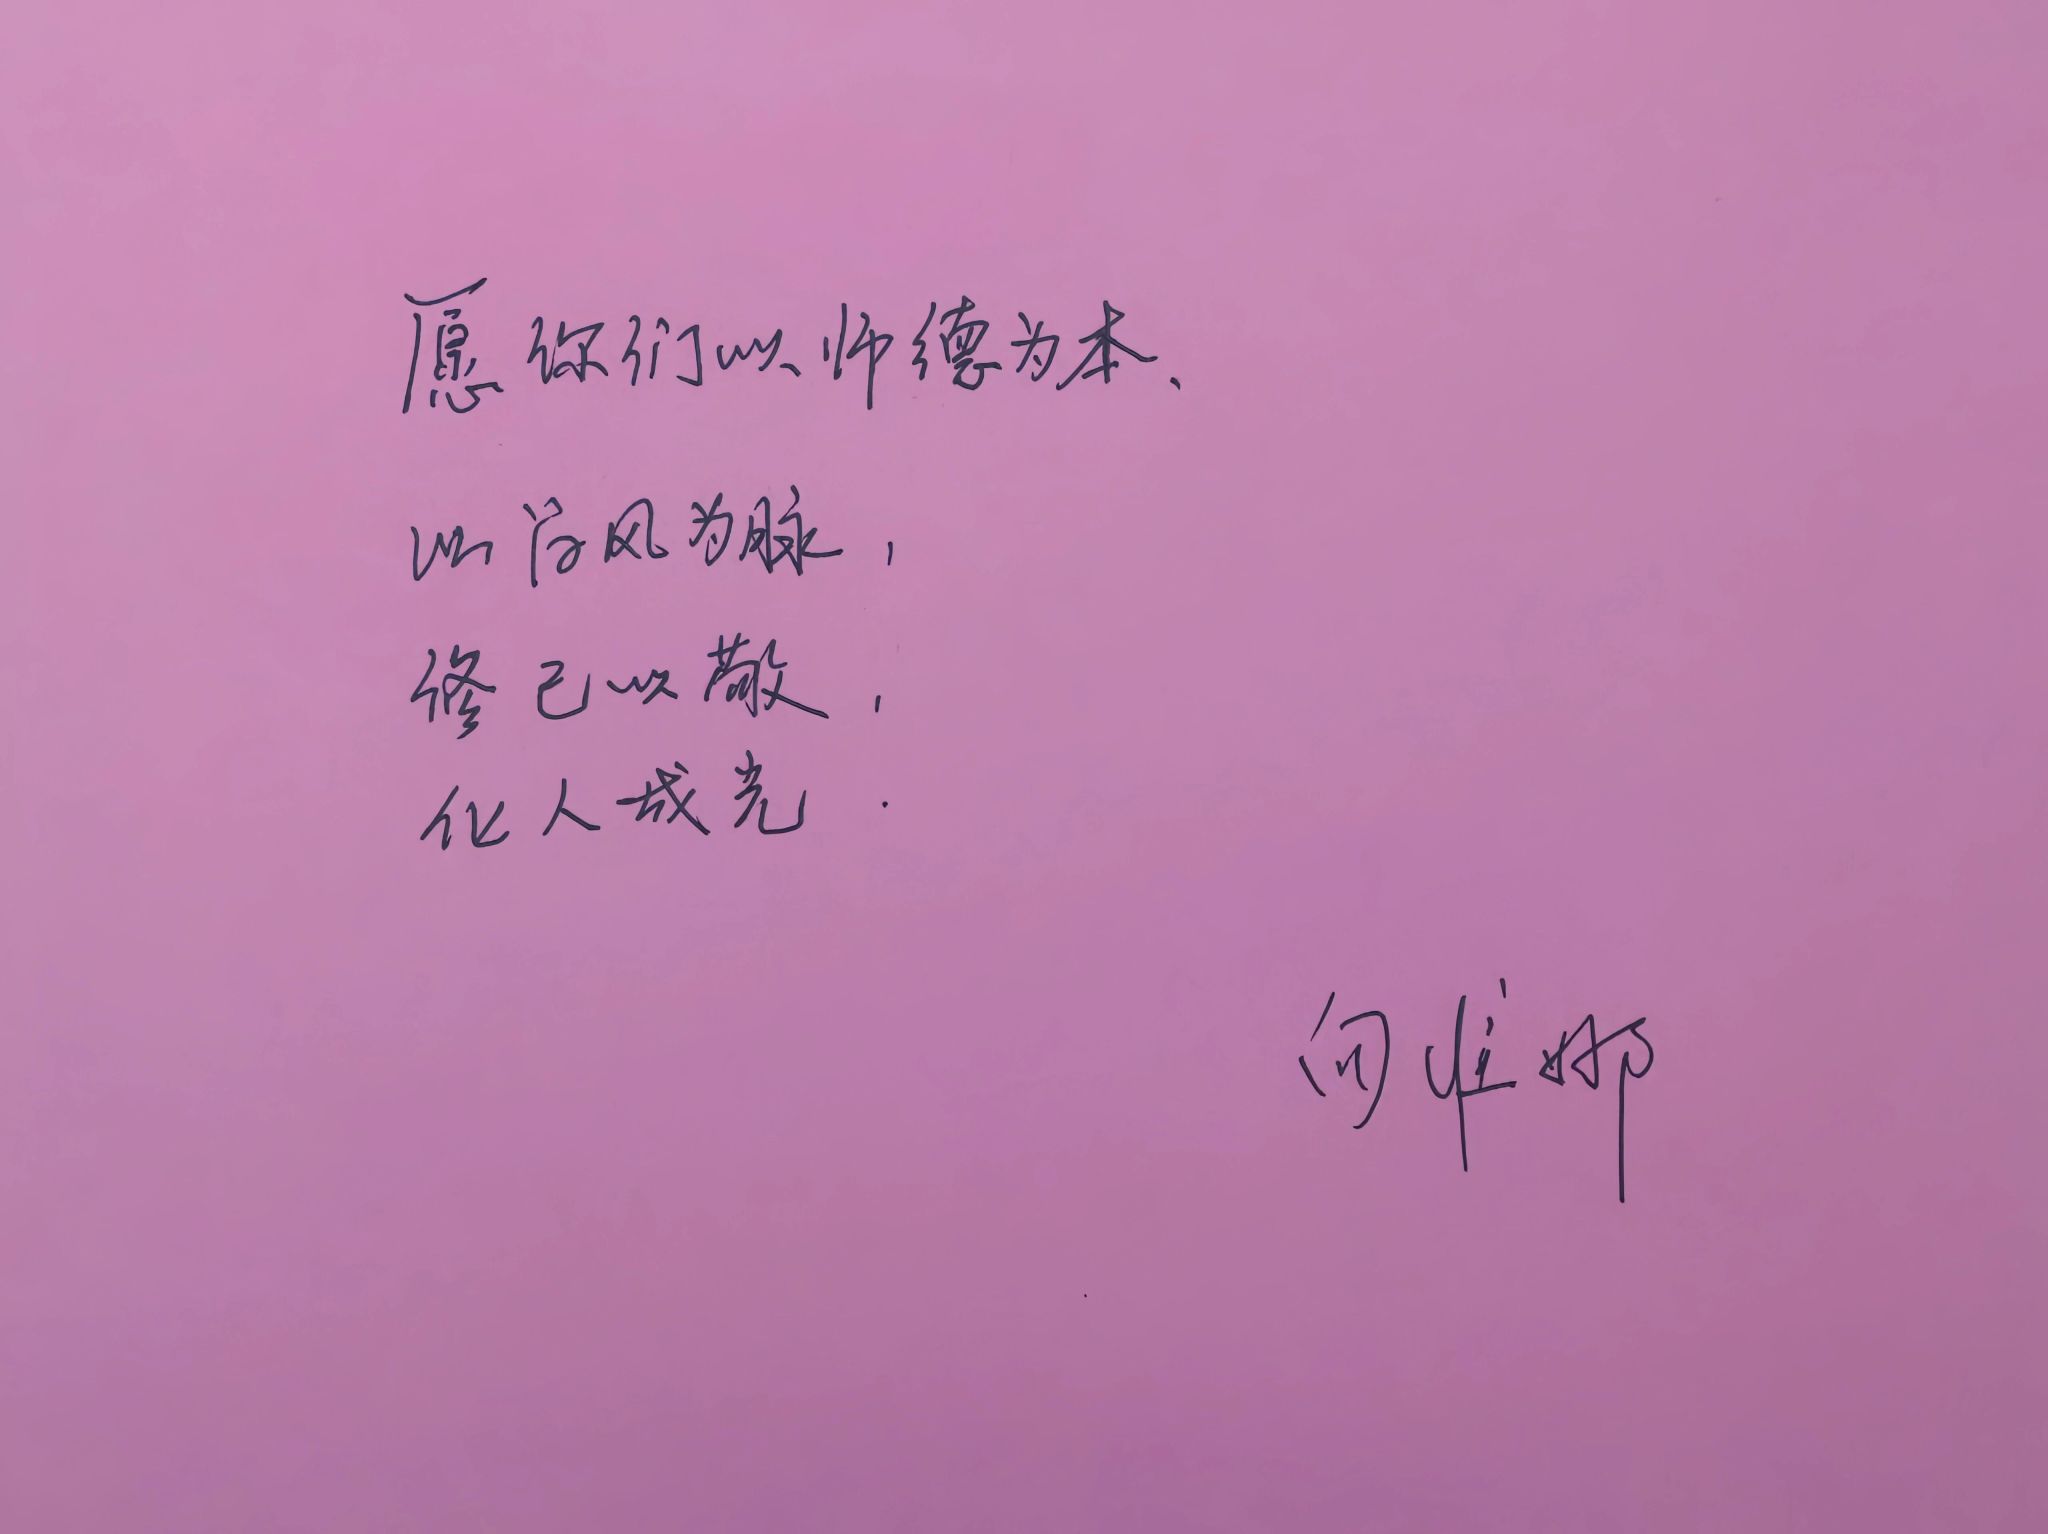 愿你们以师德为本、
以学风为脉，
修己以敬，
化人成光.
向惟娜